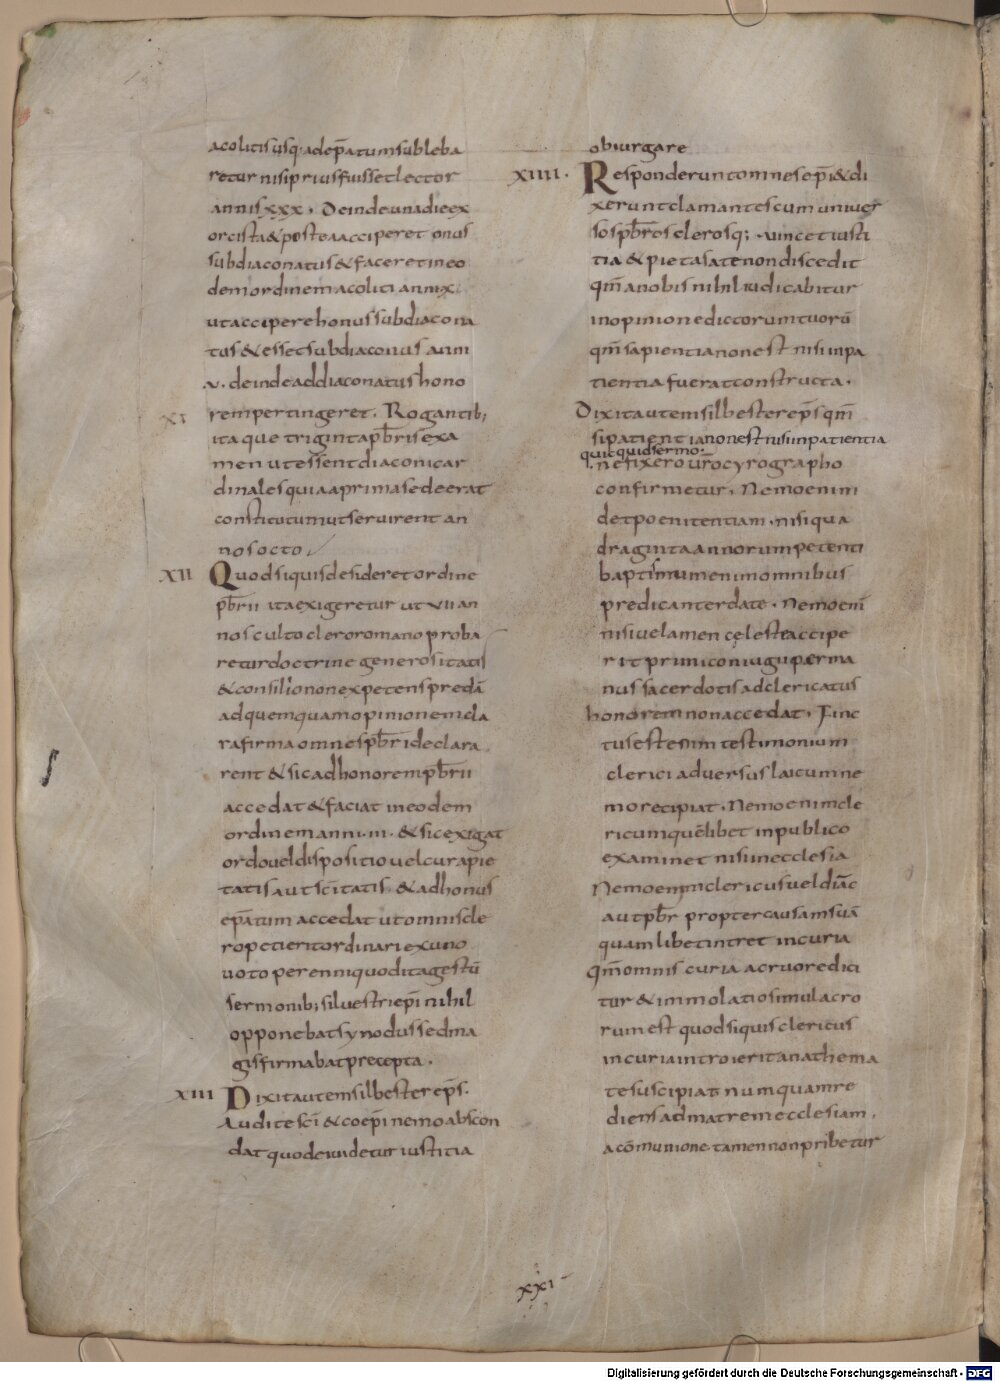 acolitis usq; ad ep̄atum subleba
retur nisi prius fuisset lector
annis xxx. Deinde una die ex
orcista & postea acciperet onus
subdiaconatus & faceret in eo
dem ordinem acoliti ann x
ut acciperet honus subdiacona
tus & esset subdiaconus ann
v. deinde ad diaconatus hono
XI rem pertingeret. Rogantib;
itaque triginta pb̄ris exa
men ut essent diaconi car
dinales quia a prima sede erat
constitutum ut servirent an
nos octo
XII Quod siquis desideret ordine
pb̄rii ita exigeretur ut VII an
nos culto clero romano proba
retur doctrine generositatis
& consilio non expetens predā
ad quemquam opinionem cla
ra firma omnes pb̄ri declara
rent & sic ad honorem pb̄rii
accedat & faciat in eodem
ordinem ann. III. & sic exigat
ordo vel dispositio vel cura pie
tatis aut sc̄itatis & ad honus
ep̄atum accedat ut omnis cle
ro petierit ordinari ex uno
voto perenni quod itagestū
sermonib; silvestri ep̄i nihil
opponebat synodus sed ma
gis firmabat precepta.
XIII Dixit autem silbester ep̄s.
Audite sc̄i & coep̄i nemo abscon
dat quod ei videtur iustitia
obiurgare
XIIII. Responderunt omnes ep̄i & di
xerunt clamantes cum univer
sos pb̄ros cleros q; vincet iusti
tia & pietas a te non discedit
qm̄ a nobis nihil iudicabitur
in opinione dictorum tuorū
qm̄ sapientia non est nisi in pa
tientia fuerat constructa.
Dixit autem silbester ep̄s qm̄
si patientia non est nisi in patientia
quicquid sermo
ne fixero vr̄o cyrographo
confirmetur. Nemo enim
det poenitentiam. nisi qua
draginta annorum petenti
baptismum enim omnibus
predicanter date. Nemo enī
nisi velamen celeste accipe
rit primi coniugii per ma
nus sacerdotis ad clericatus
honorem non accedat. Finc
tus est enim testimonium
clerici adversus laicum ne
mo recipiat. Nemo enim cle
ricum quēlibet in publico
examinet nisi in ecclesia
Nemo enim clericus vel diāc
aut pb̄r propter causam suā
quamlibet intret in curia
qm̄ omnis curia a cruore dici
tur & immolatio simulacro
rum est quod siquis clericus
in curia introierit anathema
te suscipiat numquam re
diens ad matrem ecclesiam.
a cōmunione tamen non pribetur
xxi
Digitalisierung gefördert durch die Deutsche Forschungsgemeinschaft - DFG